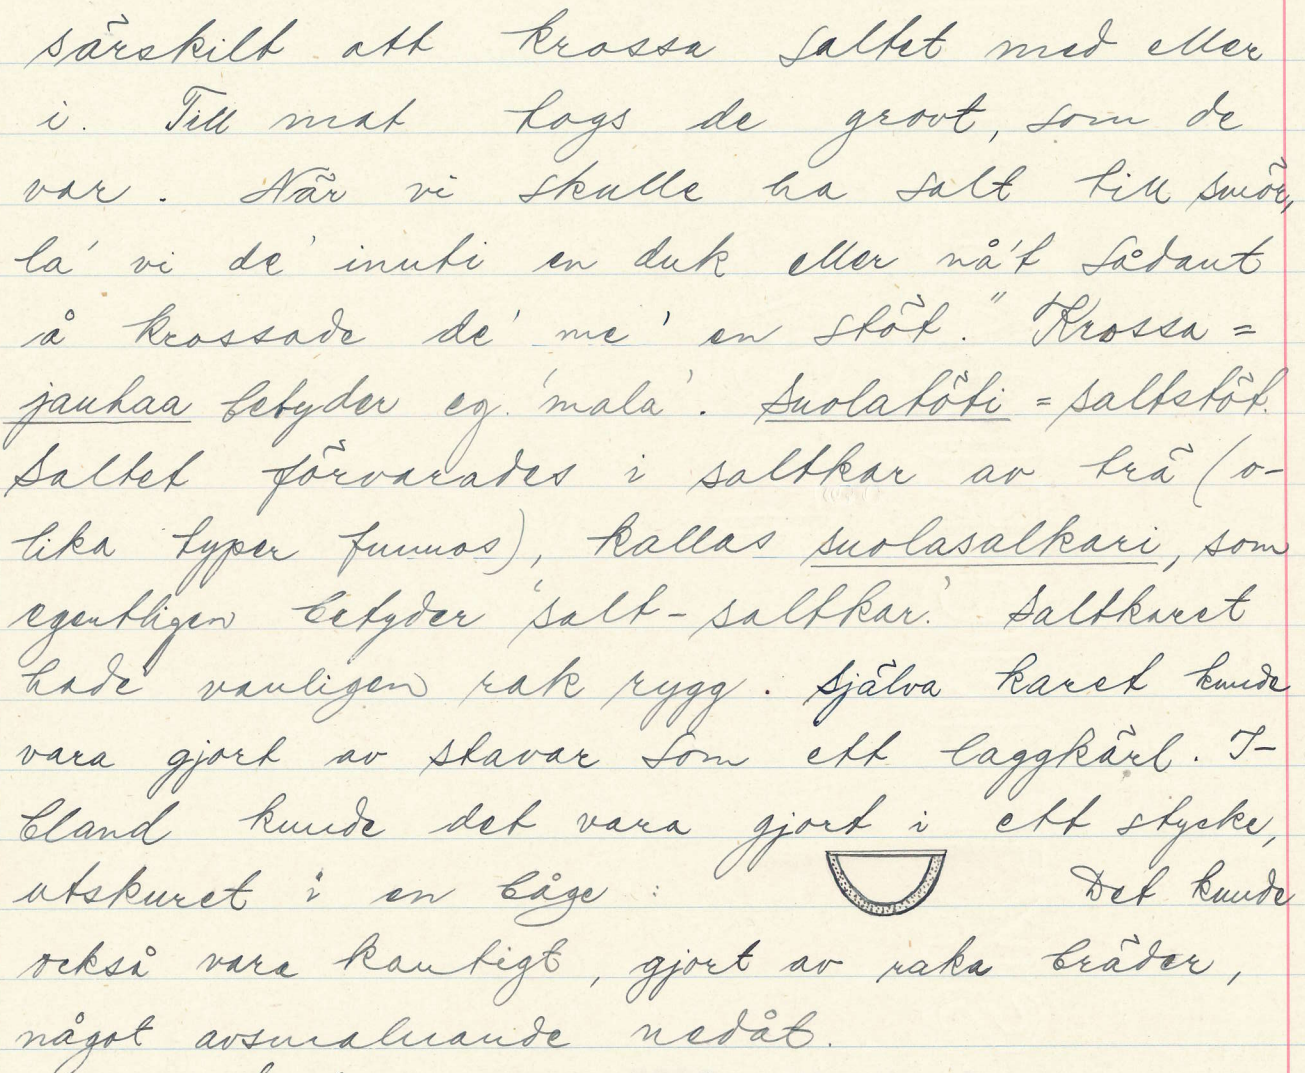 särskilt att krossa saltet med eller
i. Till mat togs de grovt, som de
var. När vi skulle ha salt till smör,
la' vi de' inuti en duk eller nå't sådant
å krossade de' me' en stöt." Krossa =
jauhaa betyder eg. 'mala'. Suolatöti = saltstöt.
Saltet förvarades i saltkar av trä (o-
lika typer funnos), kallas suolasalkari, som
egentligen betyder 'salt-saltkar.' Saltkaret
hade vanligen rak rygg. Själva karet kunde
vara gjort av stavar som ett laggkärl. I-
bland kunde det vara gjort i ett stycke,
utskuret i en båge :      Det kunde
också vara kantigt, gjort av raka bräder,
något avsmalnande nedåt.